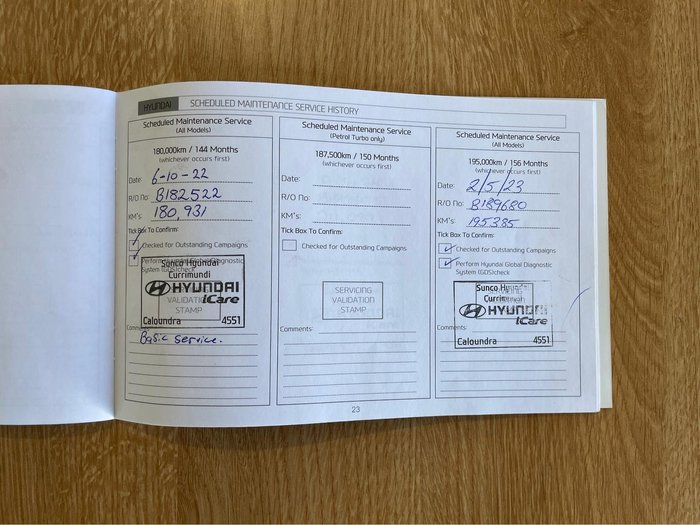 HYUNDAI SCHEDULED MAINTENANCE SERVICE HISTORY
Scheduled Maintenance Service
(All Models)
180,000km / 144 Months
(whichever occurs first)
Date: 6-10-22
R/O No: B182522
KM's: 180,931
Tick Box To Confirm:
Checked for Outstanding Campaigns
Perform Hyundai Global Diagnostic
System (GDS)check
Sunco Hyundai
Currimundi
HYUNDAI
iCare
VALIDATION
STAMP
Caloundra 4551
Comments:
Basic service.
Scheduled Maintenance Service
(Petrol Turbo only)
187,500km / 150 Months
(whichever occurs first)
Date:
R/O No:
KM's:
Tick Box To Confirm:
Checked for Outstanding Campaigns
SERVICING
VALIDATION
STAMP
Comments:
Scheduled Maintenance Service
(All Models)
195,000km / 156 Months
(whichever occurs first)
Date: 2/5/23
R/O No: B189680
KM's: 195385
Tick Box To Confirm:
Checked for Outstanding Campaigns
Perform Hyundai Global Diagnostic
System (GDS)check
Sunco Hyundai
Currimundi
HYUNDAI
iCare
Caloundra 4551
Comments:
23